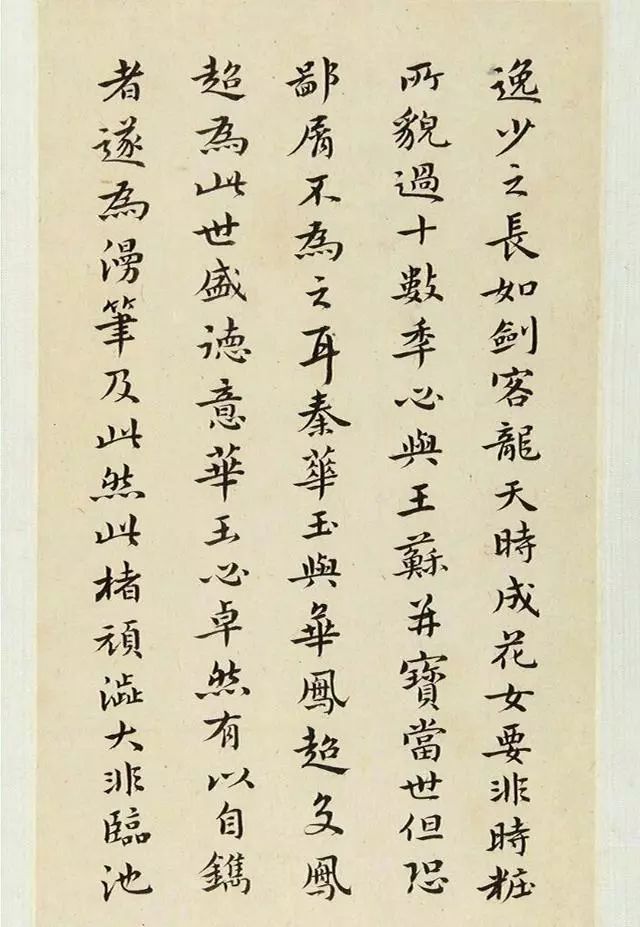 逸少之長如劍客龍天時成花女要非時粧
所貌過十數年必與王蘇并寶當世但恐
鄙屑不為之耳秦華玉與華鳳超友鳳
超為此世盛德意華玉必卓然有以自鐫
者遂為漫筆及此然此楮頑澁大非臨池